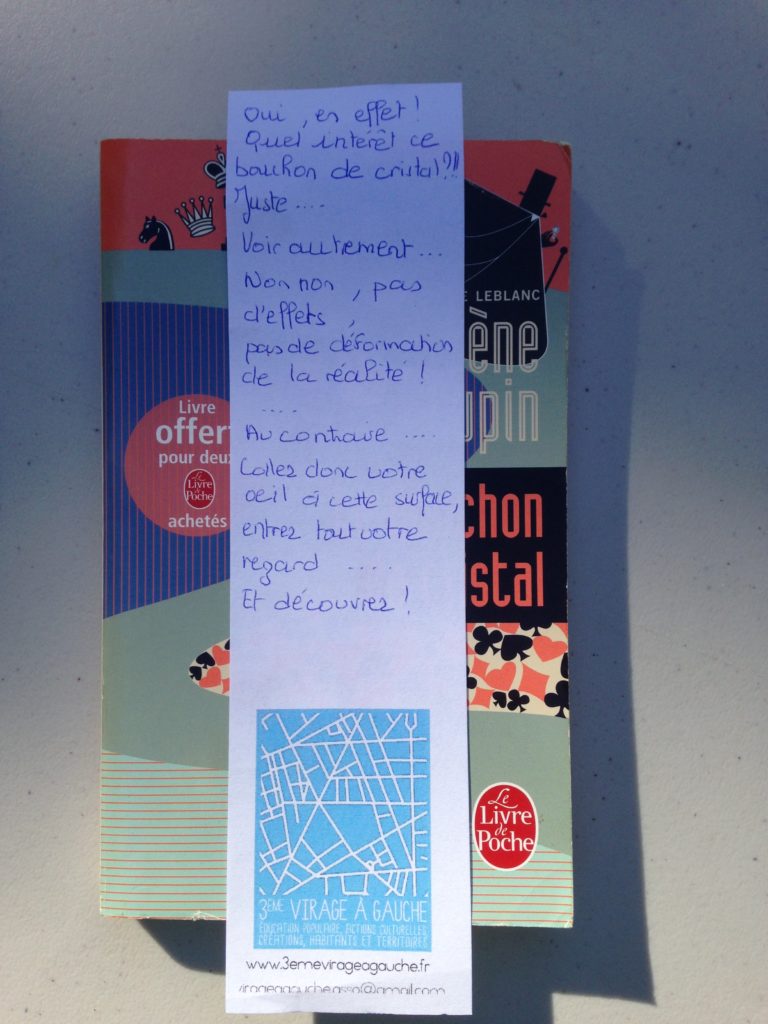 Oui, en effet !
Quel intérêt ce
bouchon de cristal?!!
Juste....
Voir autrement...
Non non, pas
d'effets,
pas de déformation
de la réalité !
....
Au contraire ....
Collez donc votre
oeil à cette surface,
entrez tout votre
regard ....
Et découvrez !
3EME VIRAGE À GAUCHE
EDUCATION POPULAIRE, ACTIONS CULTURELLES,
CRÉATIONS, HABITANTS ET TERRITOIRES
www.3emevirageagauche.fr
virageagauche.asso@gmail.com
Livre
offert
pour deux
Le
Livre
de
Poche
achetés
E LEBLANC
ène
upin
chon
stal
Le
Livre
de
Poche